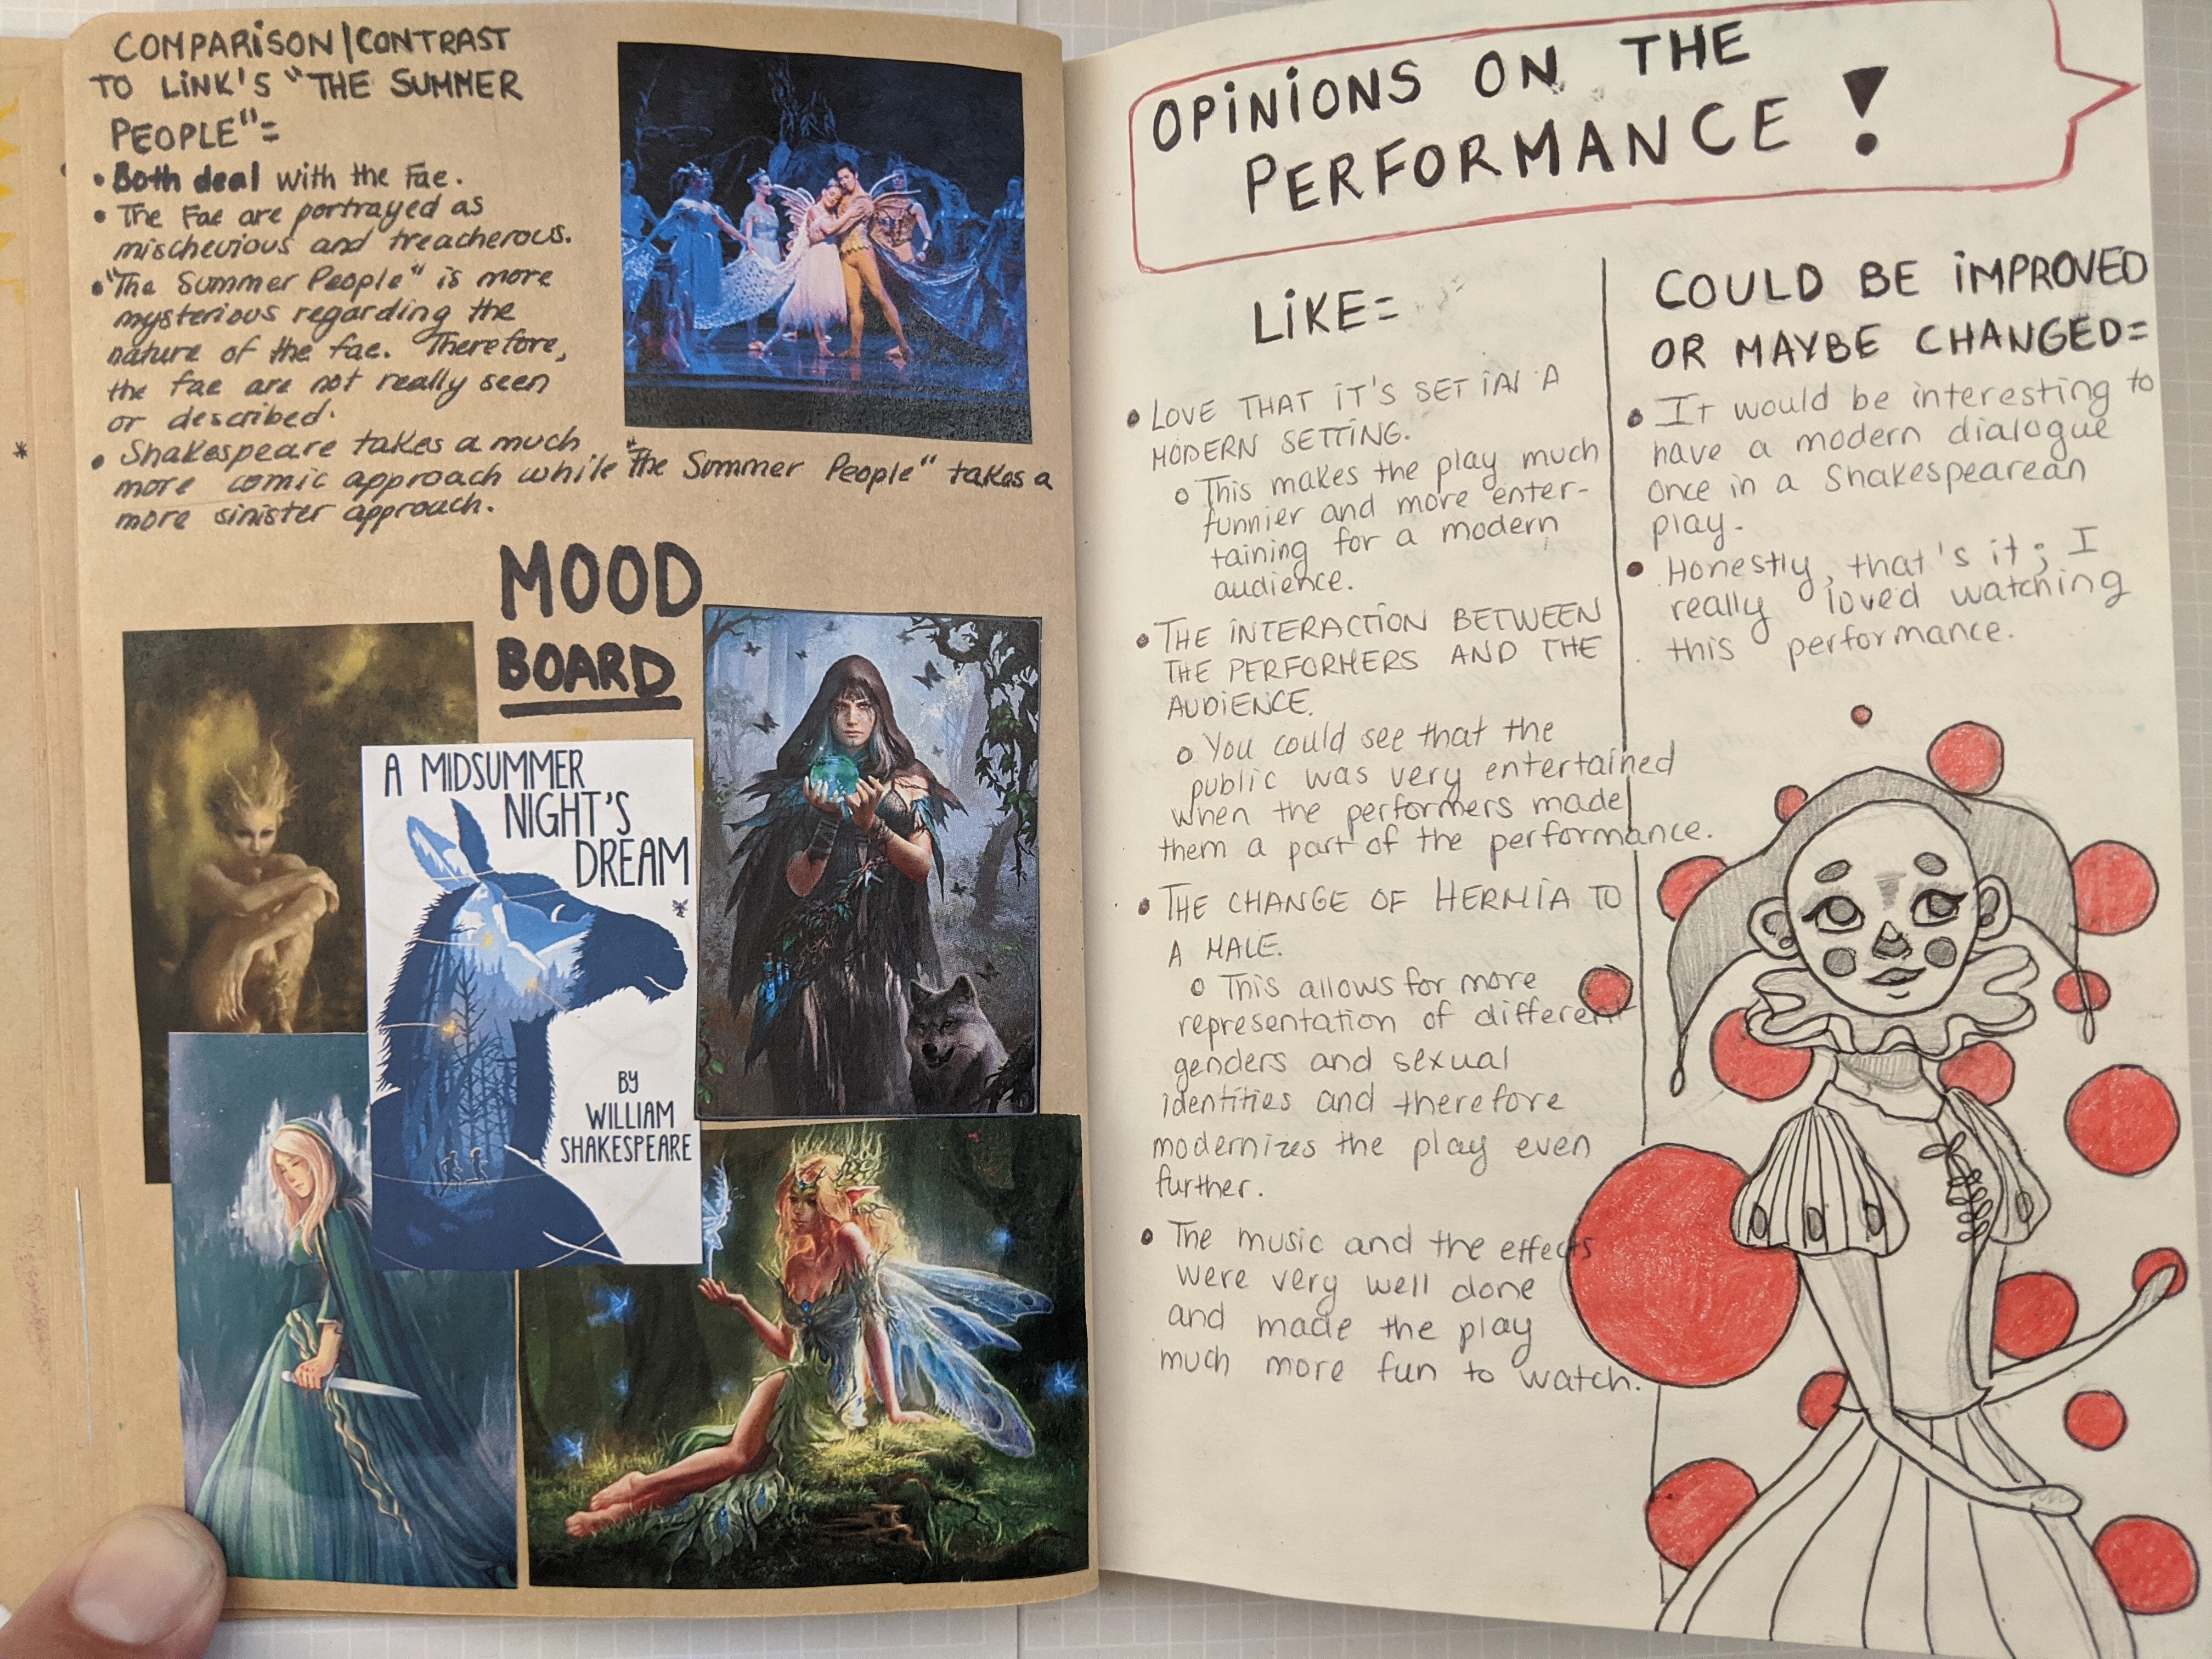 COMPARISON/CONTRAST
TO LINK'S "THE SUMMER
PEOPLE"=
• Both deal with the Fae.
• The Fae are portrayed as
mischevious and treacherous.
• "The Summer People" is more
mysterious regarding the
nature of the fae. Therefore,
the fae are not really seen
or described.
• Shakespeare takes a much
more comic approach while "The Summer People" takes a
more sinister approach.
MOOD
BOARD
A MIDSUMMER
NIGHT'S
DREAM
BY
WILLIAM
SHAKESPEARE
OPINIONS ON THE
PERFORMANCE!
LIKE=
• LOVE THAT IT'S SET IN A
MODERN SETTING.
○ This makes the play much
funnier and more enter-
taining for a modern
audience.
• THE INTERACTION BETWEEN
THE PERFORMERS AND THE
AUDIENCE.
○ You could see that the
public was very entertained
when the performers made
them a part of the performance.
• THE CHANGE OF HERMIA TO
A MALE.
○ This allows for more
representation of different
genders and sexual
identities and therefore
modernizes the play even
further.
• The music and the effects
were very well done
and made the play
much more fun to watch.
COULD BE IMPROVED
OR MAYBE CHANGED=
• It would be interesting to
have a modern dialogue
once in a Shakespearean
play.
• Honestly, that's it; I
really loved watching
this performance.